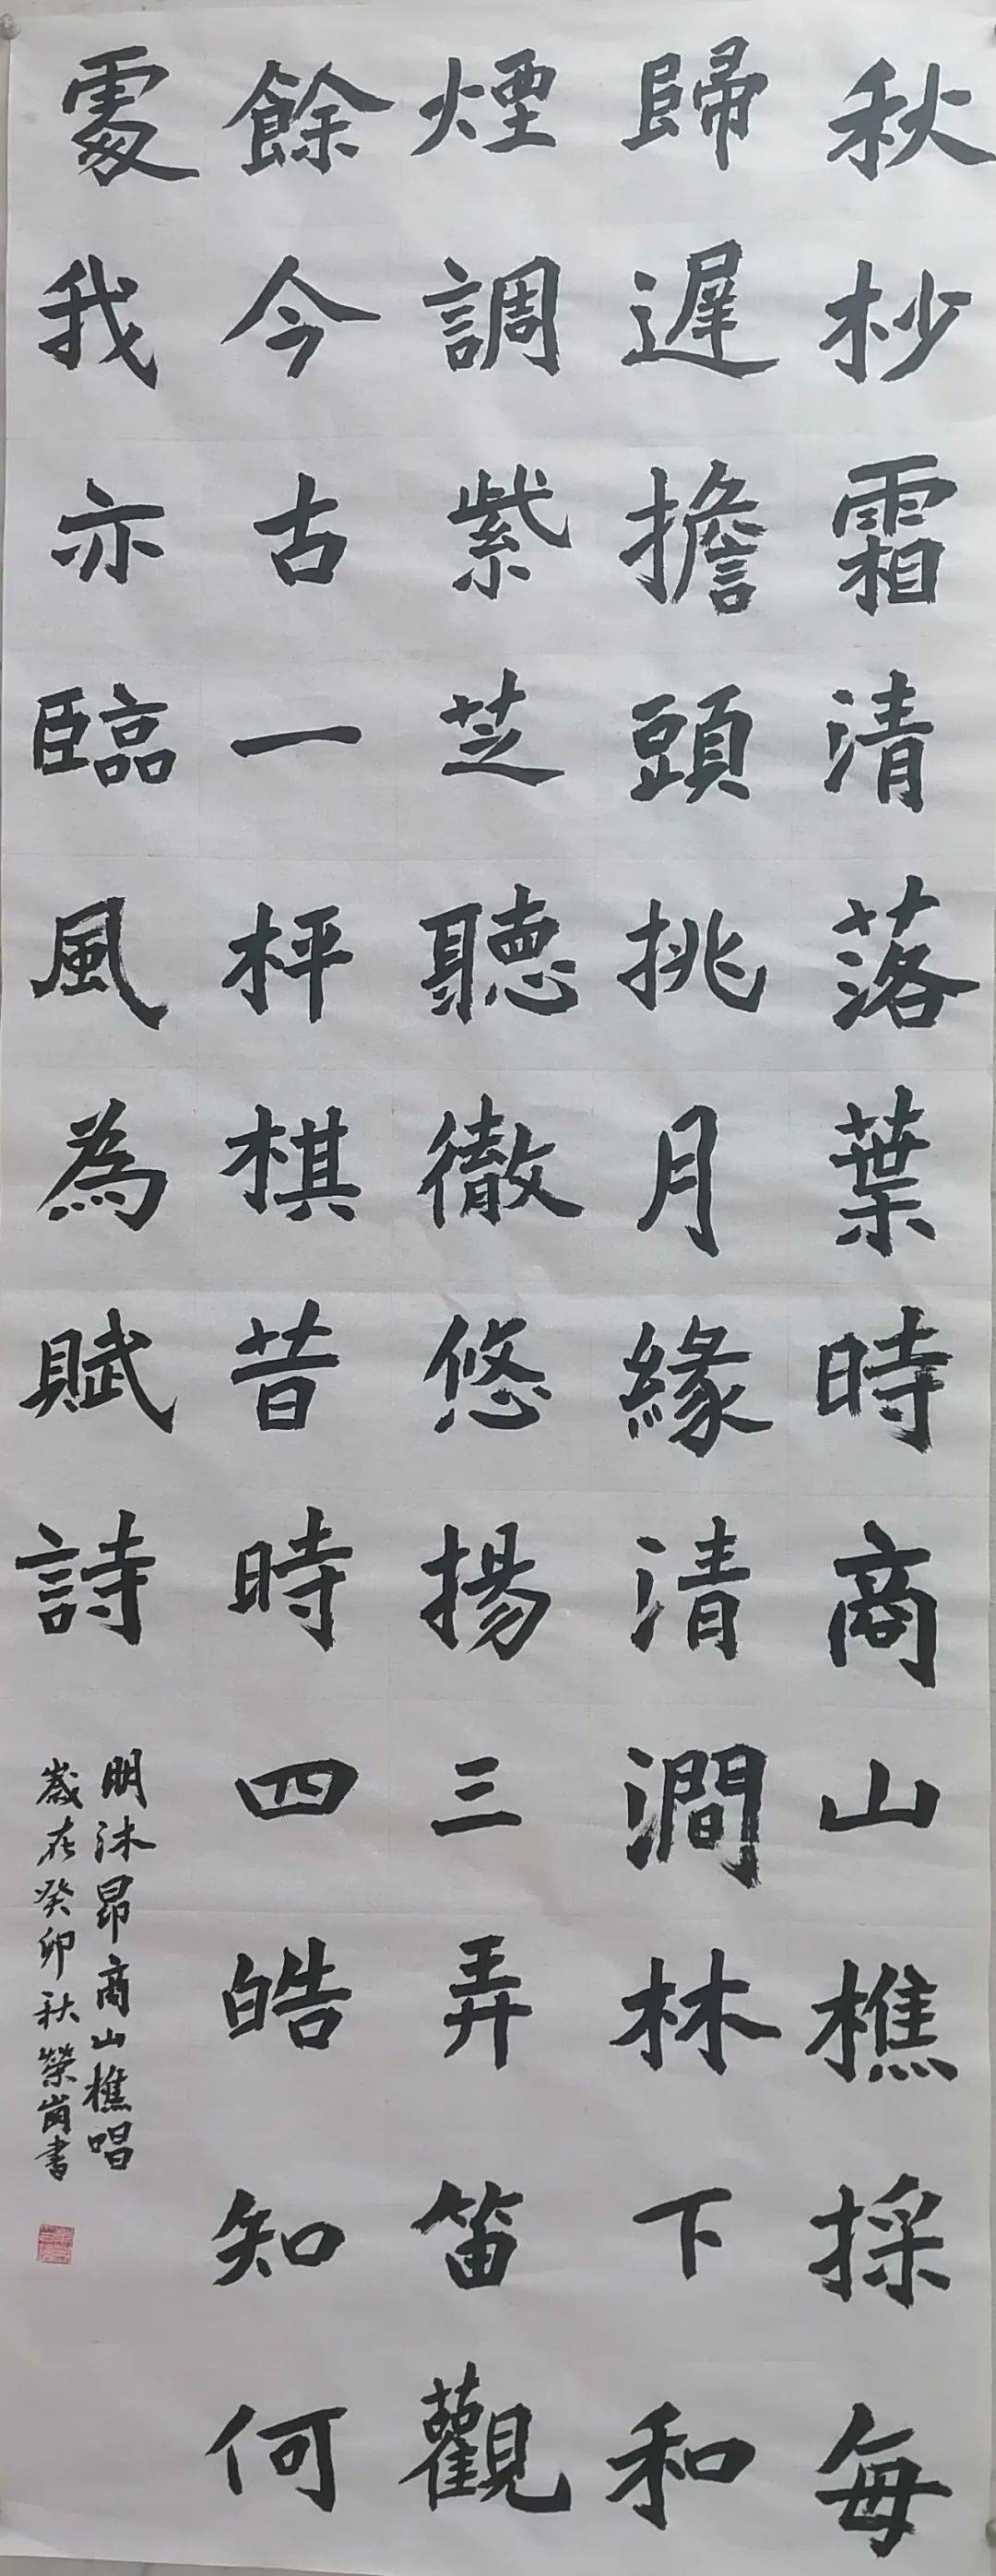 秋杪霜清落葉時商山樵採每
歸遲擔頭挑月緣清澗林下和
煙調紫芝聽徹悠揚三弄笛觀
餘今古一枰棋昔時四皓知何
處我亦臨風為賦詩
明沐昂商山樵唱
歲在癸卯秋榮崗書